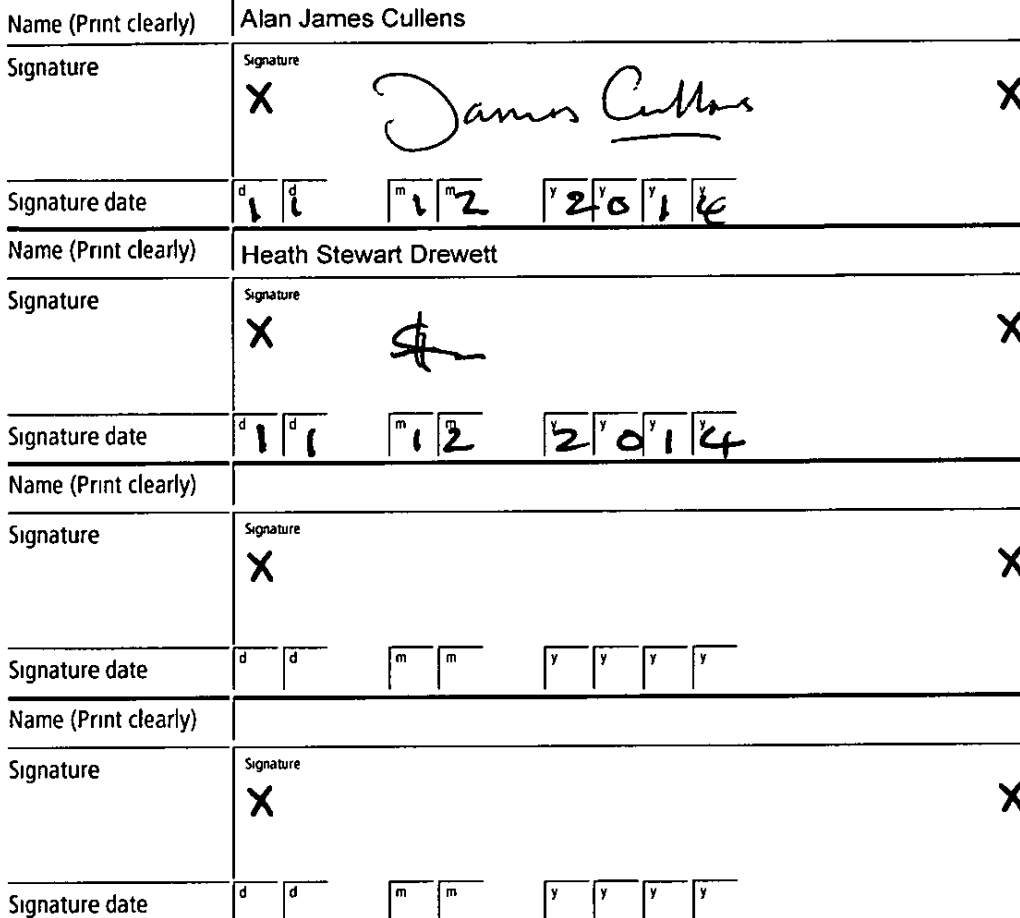 Name (Print clearly) Alan James Cullens
Signature Signature
X James Cullens X
Signature date d1 d1 m1 m2 y2 y0 y1 y4
Name (Print clearly) Heath Stewart Drewett
Signature Signature
X X
Signature date d1 d1 m1 m2 y2 y0 y1 y4
Name (Print clearly)
Signature Signature
X X
Signature date d d m m y y y y
Name (Print clearly)
Signature Signature
X X
Signature date d d m m y y y y